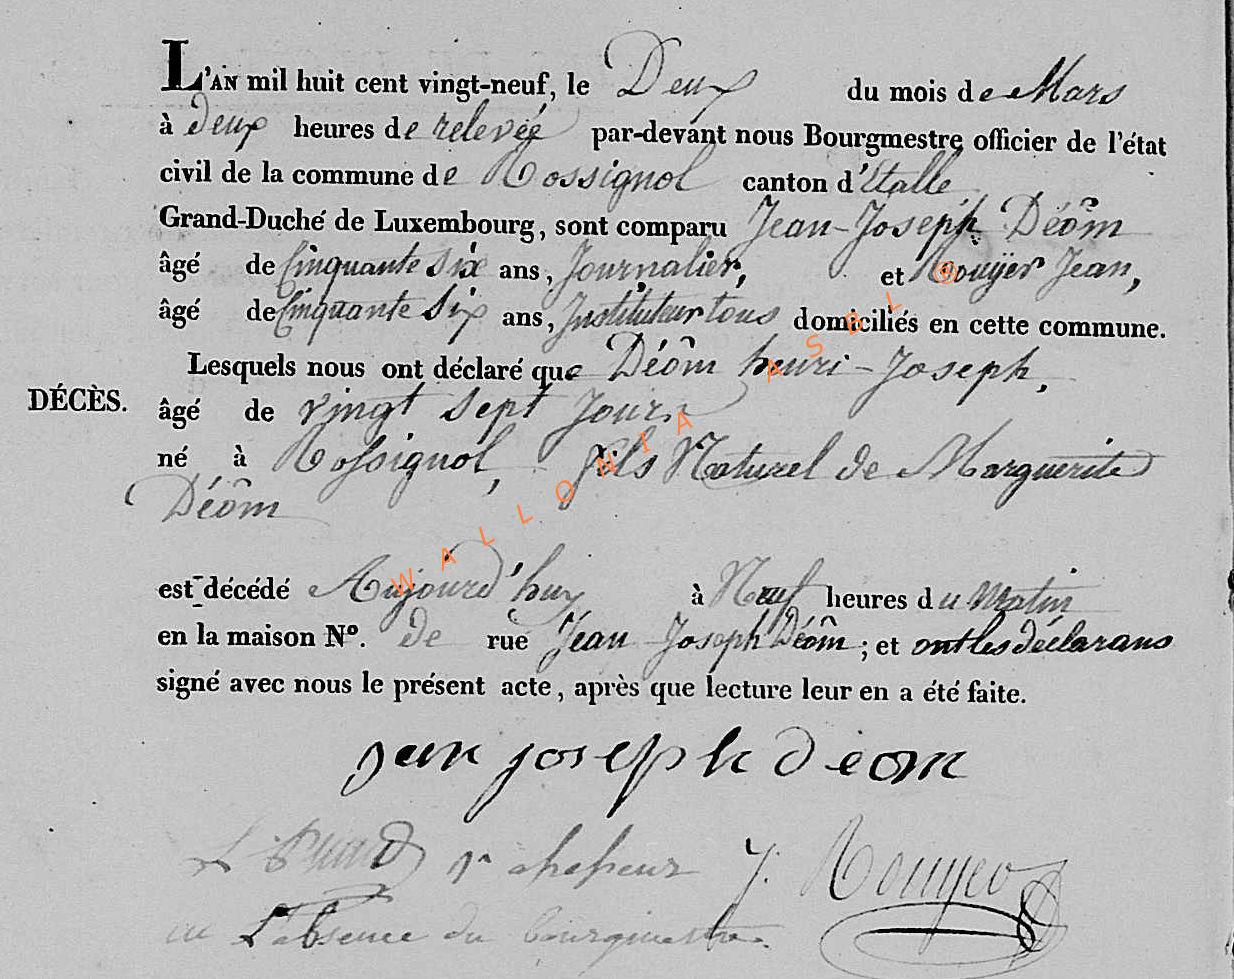 L'AN mil huit cent vingt-neuf, le Deux du mois de Mars
à deux heures de relevée par-devant nous Bourgmestre officier de l'état
civil de la commune de Rossignol canton d'Etalle
Grand-Duché de Luxembourg, sont comparu Jean-Joseph Déôm
âgé de Cinquante Six ans, Journalier, et Rouÿer Jean,
âgé de Cinquante Six ans, Instituteur tous domiciliés en cette commune.
Lesquels nous ont déclaré que Déôm henri-Joseph,
DÉCÈS. âgé de Vingt Sept Jours
né à Rossignol, fils Naturel de Marguerite
Déôm
est décédé Aujourd'huy à Neuf heures du Matin
en la maison Nº. de rue Jean Joseph Déôm ; et ont les déclarans
signé avec nous le présent acte, après que lecture leur en a été faite.
jean joseph déom
J. Rouyer
en L'absence du bourgmestre.
WALLONIA ASBL ©